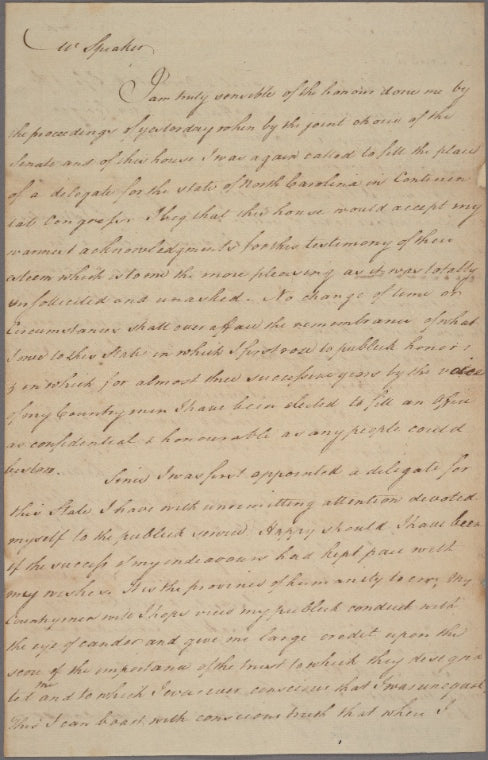 Mr Speaker
I am truly sensible of the honour done me by
the proceedings of yesterday when by the joint choice of the
Senate and of this house I was again called to fill the place
of a delegate for the state of North Carolina in Continen
tal Congress I beg that this house would accept my
warmest acknowledgments for this testimony of their
esteem which is to me the more pleasing as it was totally
unsollicited and unasked. No change of time or
Circumstances shall ever efface the remembrance of what
I owe to this State in which I first rose to publick honors
& in which for almost three successive years by the voice
of my Countrymen I have been elected to fill an Office
as confidential & honourable as any people could
bestow. Since I was first appointed a delegate for
this State I have with unremitting attention devoted
myself to the publick service Happy should I have been
if the success of my endeavours had kept pace with
my wishes. It is the province of humanity to err, My
Countrymen will I hope view my publick conduct with
the eye of candor and give me large credit upon the
score of the importance of the trust to which they designa
ted me and to which I was ever conscious that I was unequal
This I can boast with conscious truth that when I